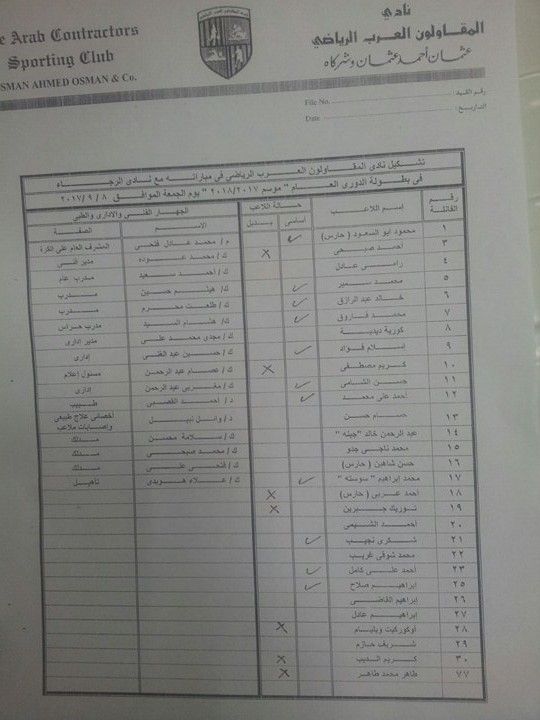 The Arab Contractors
Sporting Club
OSMAN AHMED OSMAN & Co.
نادي
المقاولون العرب الرياضي
عثمان أحمد عثمان وشركاه
رقم القيد :
File No.
التاريخ :
Date
تشكيل نادى المقاولون العرب الرياضى فى مباراته مع نادى الرجاء
فى بطولة الدورى العام " موسم ٢٠١٨/٢٠١٧ " يوم الجمعة الموافق ٢٠١٧/٩/٨
رقم الفانلة اسم اللاعب حالة اللاعب الجهاز الفنى والادارى والطبى
أساسى بديل الاسم الصفة
١ محمود ابو السعود (حارس) ✓ م / محمد عادل فتحى المشرف العام على الكرة
٣ أحمد صبحى × ك / محمد عوده مدير فنى
٤ رامى عادل ك / أحمد سعيد مدرب عام
٥ محمد سمير ✓ ك / هيثم حسين مدرب
٦ خالد عبد الرازق ✓ ك / طلعت محرم مدرب
٧ محمد فاروق ✓ ك / هشام السيد مدرب حراس
٨ كوزية ديدبة ك / مجدى محمد على مدير ادارى
٩ اسلام فؤاد ✓ ك / حسين عبد الغنى إدارى
١٠ كريم مصطفى × ك / عصام عبد الرحمن مسئول إعلام
١١ حسن الشامى ✓ ك / مغربى عبد الرحمن إدارى
١٢ أحمد على محمد ✓ د / أحمد القصبى طبيب
١٣ حسام حسن د / وائل نبيل أخصائى علاج طبيعى وإصابات ملاعب
١٤ عبد الرحمن خالد "جيله" ك / سلامة محسن مدلك
١٥ محمد ناجى جدو ك / محمد صبحى مدلك
١٦ حسن شاهين (حارس) ك / فتحى على مدلك
١٧ محمد إبراهيم " سوسته " ✓ ك / علاء هويدى تأهيل
١٨ أحمد عربى (حارس) ×
١٩ نوريك جبرين ×
٢٠ أحمد الشيمى
٢١ شكرى نجيب ✓
٢٢ محمد شوقى غريب
٢٣ أحمد على كامل ✓
٢٥ إبراهيم صلاح ✓
٢٦ إبراهيم القاضى
٢٧ إبراهيم عادل
٢٨ أوكوركيت ويليام ×
٢٩ شريف حازم
٣٠ كريم الديب ×
٧٧ طاهر محمد طاهر ×